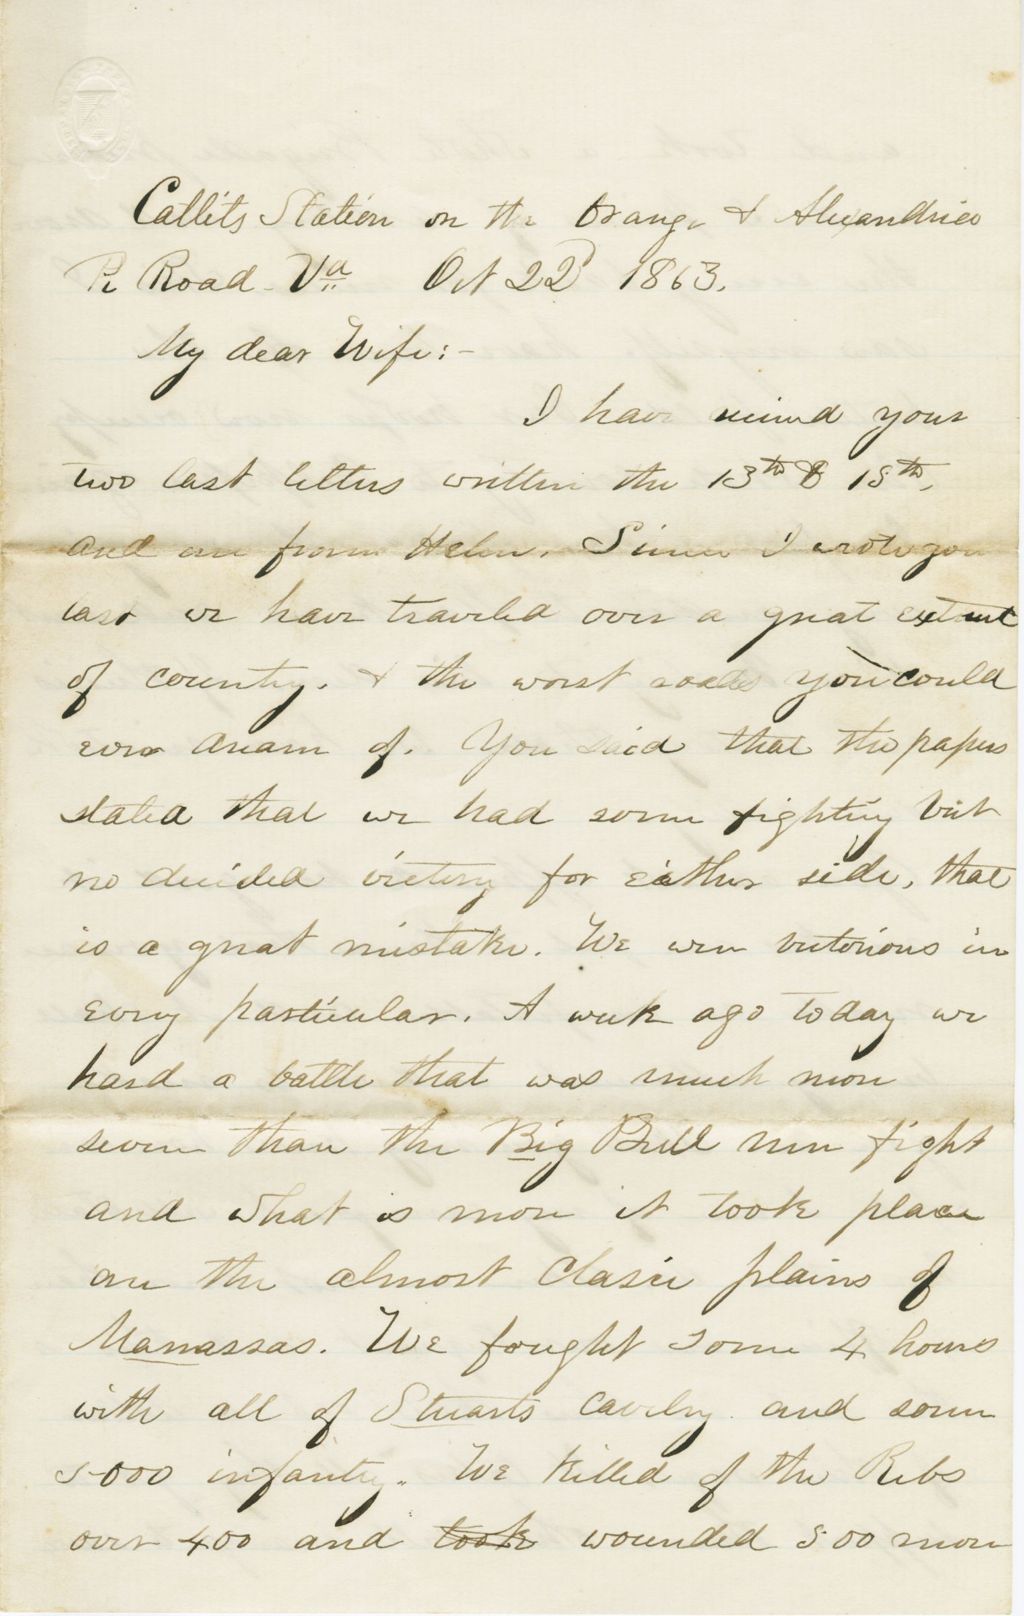 Catlits Station on the Orange & Alexandria
R Road Va Oct 22d 1863.
My dear Wife:-
I have recieved your
two last letters written the 13th & 15th,
and one from Helen. Since I wrote you
last we have traveled over a great extent
of country. & the worst roads you could
ever dream of. You said that the papers
stated that we had some fighting but
no decided victory for either side, that
is a great mistake. We were victorious in
every particular. A week ago today we
hard a battle that was much more
severe than the Big Bull run fight
and what is more it took place
on the almost Clasic plains of
Manassas. We fought some 4 hours
with all of Stuarts Cavelry and some
5000 infantry. We killed of the Rebs
over 400 and took wounded 500 more